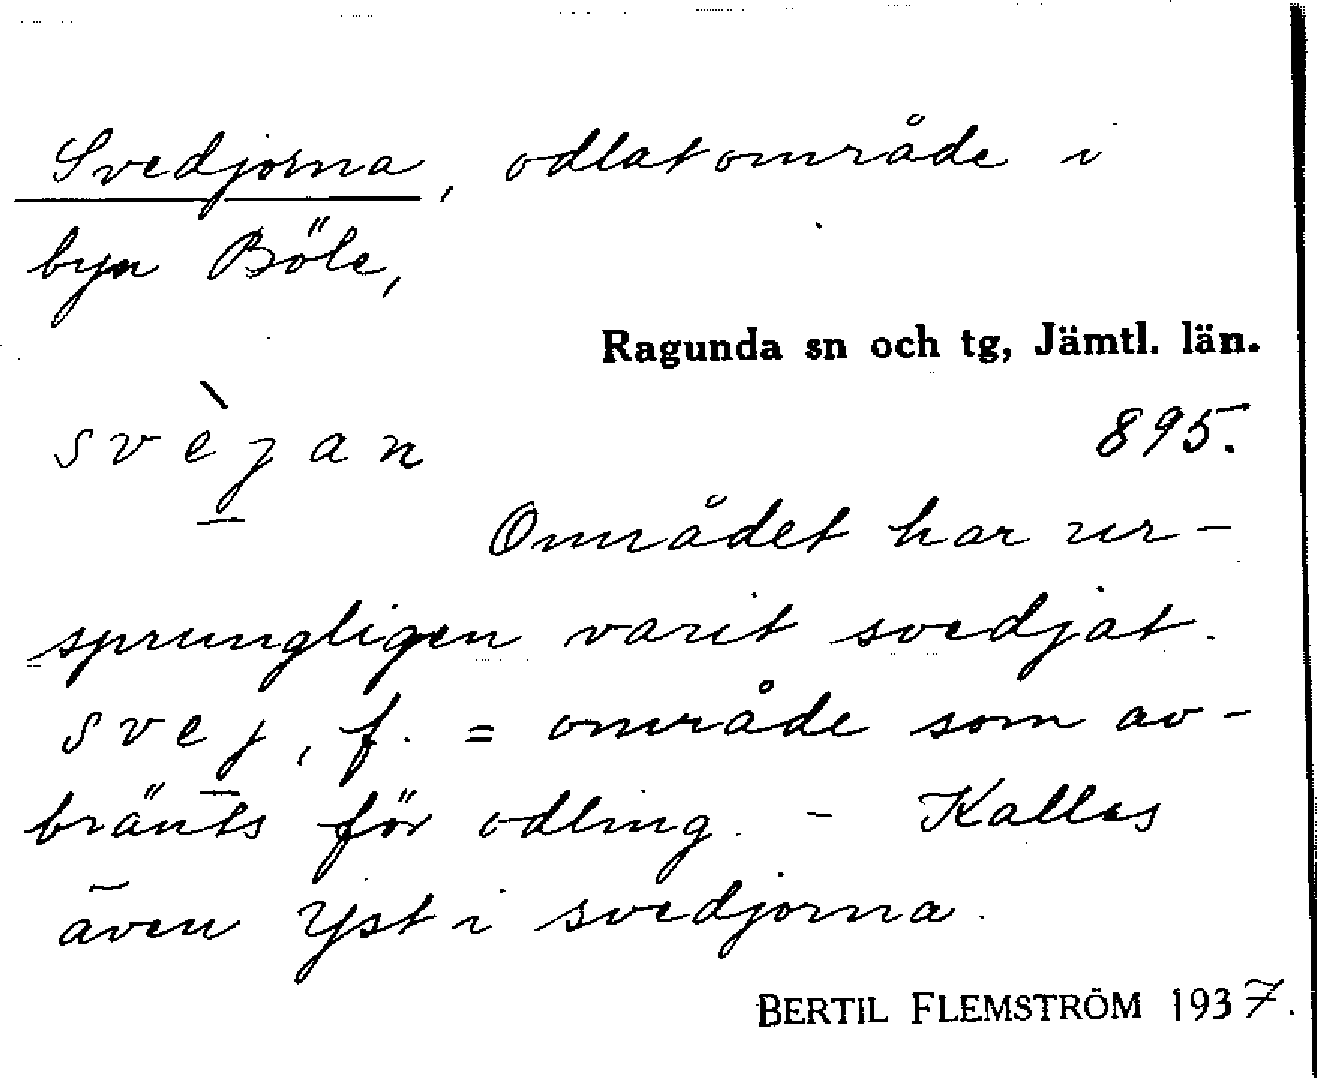 Svedjorna, odlat område i
byn Böle,
Ragunda sn och tg, Jämtl. län.
svèjan
895.
Området har ur-
sprungligen varit svedjat.
svej, f. = område som av-
bränts för odling. - Kallas
även Yst i svedjorna.
BERTIL FLEMSTRÖM 1937.